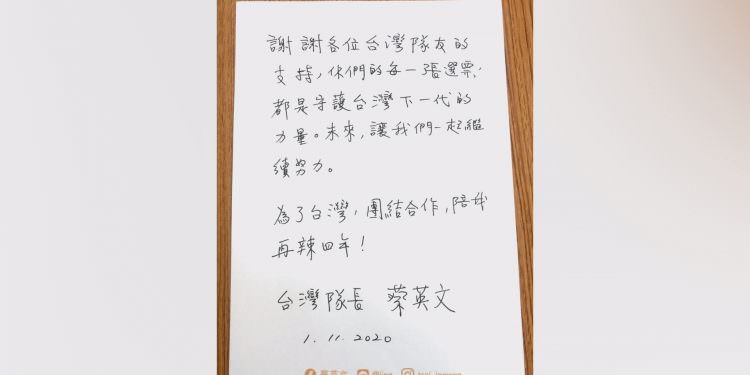 謝謝各位台灣隊友的
支持,你們的每一張選票,
都是守護台灣下一代的
力量。未來,讓我們一起繼
續努力。
為了台灣,團結合作,陪我
再辣四年!
台灣隊長 蔡英文
1. 11. 2020